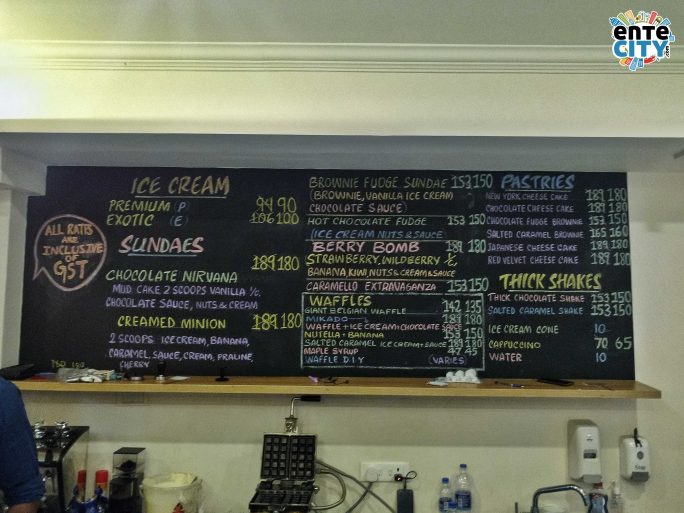 ENTE CITY.com
ALL RATES ARE INCLUSIVE OF GST
ICE CREAM
PREMIUM (P) 94 90
EXOTIC (E) 106 100
SUNDAES
CHOCOLATE NIRVANA 189 180
MUD CAKE 2 SCOOPS VANILLA
CHOCOLATE SAUCE, NUTS & CREAM
CREAMED MINION 189 180
2 SCOOPS ICE CREAM, BANANA,
CARAMEL, SAUCE, CREAM, PRALINE,
CHERRY
BROWNIE FUDGE SUNDAE 153 150
(BROWNIE, VANILLA ICE CREAM
CHOCOLATE SAUCE)
HOT CHOCOLATE FUDGE 153 150
(ICE CREAM NUTS & SAUCE
BERRY BOMB 189 180
STRAWBERRY, WILDBERRY
BANANA KIWI, NUTS & CREAM & SAUCE
CARAMELLO EXTRAVAGANZA 153 150
WAFFLES
GIANT BELGIAN WAFFLE 142 135
MIKADO 189 180
WAFFLE + ICE CREAM + CHOCOLATE SAUCE
NUTELLA + BANANA 150
SALTED CARAMEL ICE CREAM + SAUCE 189 180
MAPLE SYRUP 47 45
WAFFLE D.I.Y (VARIES)
PASTRIES
NEW YORK CHEESE CAKE 189 180
CHOCOLATE CHEESE CAKE 189 180
CHOCOLATE FUDGE BROWNIE 153 150
SALTED CARAMEL BROWNIE 165 160
JAPANESE CHEESE CAKE 189 180
RED VELVET CHEESE CAKE 189 180
THICK SHAKES
THICK CHOCOLATE SHAKE 153 150
SALTED CARAMEL SHAKE 153 150
ICE CREAM CONE 10
CAPPUCCINO 70 65
WATER 10